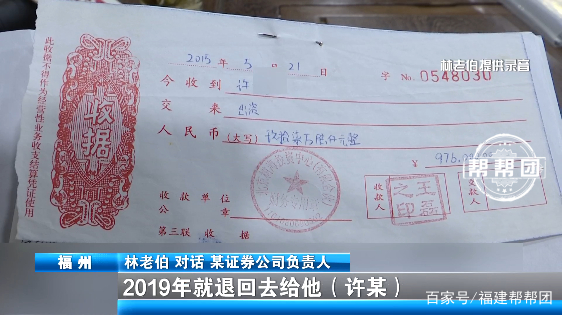 林老伯提供录音
2015年5月21日
字 No. 0548030
今收到 许
交来
人民币(大写)
¥
收款单位
公章
收款人
王磊之印
交款人
第三联 收据
收据
此收据不得作为经营性业务收支结算凭证使用
帮帮团
福州
林老伯 对话 某证券公司负责人
2019年就退回去给他(许某)
百家号/福建帮帮团